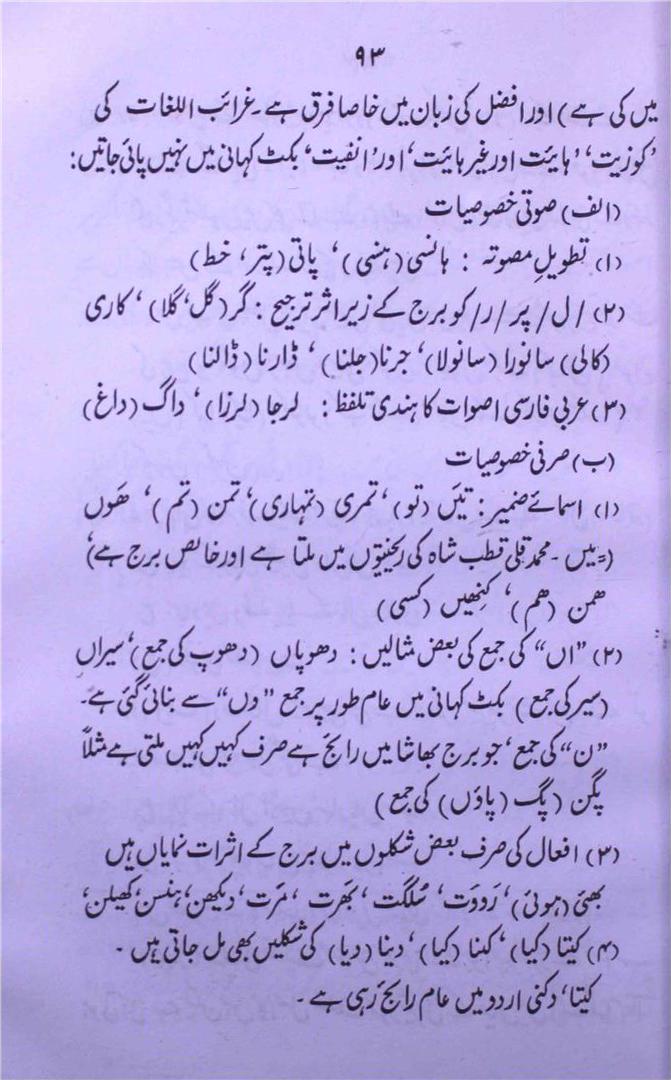 ۹۳
میں کی ہے) اور افضل کی زبان میں خاصا فرق ہے۔ غرائب اللغات کی
'کوزیت'، 'ہائیت اور غیر ہائیت'، اور 'انفیت'، بکٹ کہانی میں نہیں پائی جاتیں:
(الف) صوتی خصوصیات
(۱) تطویلِ مصوتہ : ہانسی (ہنسی)، پاتی (پتر، خط)
(۲) /ل/ پر /ر/ کو برج کے زیر اثر ترجیح : گر (گل، گلا)، کاری
(کالی) سانورا (سانولا)، جرنا (جلنا)، ڈارنا (ڈالنا)
(۳) عربی فارسی اصوات کا ہندی تلفظ : لرجا (لرزا)، داگ (داغ)
(ب) صرفی خصوصیات
(۱) اسمائے ضمیر : تیَں (تو)، تمری (تمہاری)، تمن (تم)، ھَوں
(= میں ۔ محمد قلی قطب شاہ کی ریختیوں میں ملتا ہے اور خالص برج ہے)،
ھمن (ھم)، کنھیں (کسی)
(۲) "اں" کی جمع کی بعض مثالیں : دھوپاں (دھوپ کی جمع)، سیراں
(سیر کی جمع) بکٹ کہانی میں عام طور پر جمع "وں" سے بنائی گئی ہے۔
"ن" کی جمع، جو برج بھاشا میں رائج ہے صرف کہیں کہیں ملتی ہے مثلاً
پگن (پگ (پاؤں) کی جمع)
(۳) افعال کی صرف بعض شکلوں میں برج کے اثرات نمایاں ہیں
بھئی (ہوئی)، رَووَت، سُلگت، بَھرت، مَرت، دیکھن، ہنسن، کھیلن،
(۴) کیتا (کیا)، کنا (کیا)، دینا (دیا) کی شکلیں بھی مل جاتی ہیں ۔
کیتا، دکنی اردو میں عام رائج رہی ہے ۔